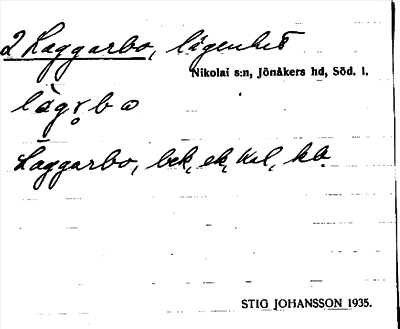 2 Laggarbo, lägenhet
Nikolai s:n, Jönåkers hd, Söd. l.
Laggarbo, bek, ek, kb.
STIG JOHANSSON 1935.